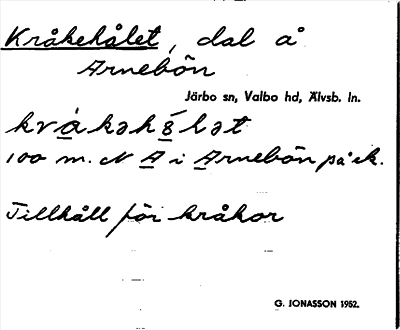 Kråkehålet, dal å
Arnebön
Järbo sn, Valbo hd, Älvsb. ln.
kvåkəhåլət
100 m. N A i Arnebön på ek.
Tillhåll för kråkor
G. JONASSON 1952.